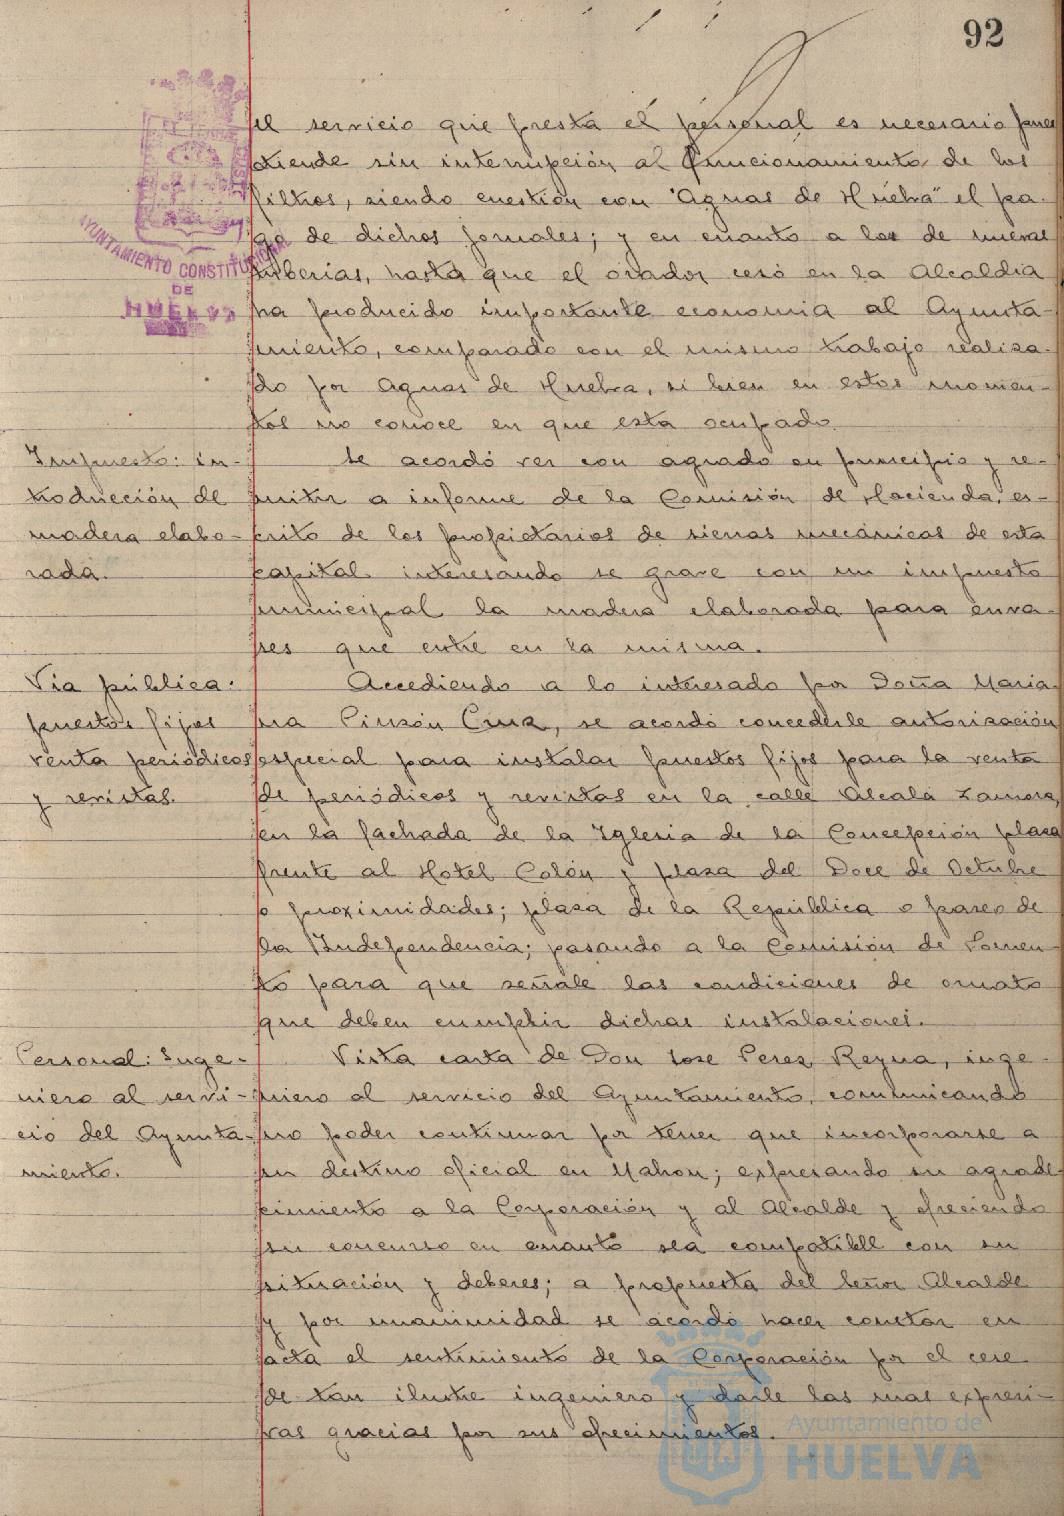 92
el servicio que presta el personal es necesario pues
atiende sin interrupción al funcionamiento de los
filtros, siendo cuestión con "Aguas de Huelva" el pa-
go de dichos jornales; y en cuanto a los de nuevas
tuberias, hasta que el orador cesó en la Alcaldia
ha producido importante economia al Ayunta-
miento, comparado con el mismo trabajo realiza-
do por Aguas de Huelva, si bien en estos momen-
tos no conoce en que esta ocupado.
AYUNTAMIENTO CONSTITUCIONAL
DE
HUELVA
Impuesto: in-
troducción de
madera elabo-
rada.
Se acordó ver con agrado en principio y re-
mitir a informe de la Comisión de Hacienda, es-
crito de los propietarios de sierras mecánicas de esta
capital interesando se grave con un impuesto
municipal la madera elaborada para enva-
ses que entre en la misma.
Via pública:
puestos fijos
venta periódicos
y revistas.
Accediendo a lo interesado por Doña Maria-
na Pinzón Cruz, se acordó concederle autorización
especial para instalar puestos fijos para la venta
de periódicos y revistas en la calle Alcalá Zamora,
en la fachada de la Iglesia de la Concepción plaza
frente al Hotel Colón y plaza del Doce de Octubre
o proximidades; plaza de la República o paseo de
la Independencia; pasando a la Comisión de Fomen-
to para que señale las condiciones de ornato
que deben cumplir dichas instalaciones.
Personal: Inge-
niero al servi-
cio del Ayunta-
miento.
Vista carta de Don Jose Perez Reyna, inge-
niero al servicio del Ayuntamiento, comunicando
no poder continuar por tener que incorporarse a
su destino oficial en Mahon; expresando su agrade-
cimiento a la Corporación y al Alcalde y ofreciendo
su concurso en cuanto sea compatible con su
situación y deberes; a propuesta del Señor Alcalde
y por unanimidad se acordó hacer constar en
acta el sentimiento de la Corporación por el cese
de tan ilustre ingeniero y darle las mas expresi-
vas gracias por sus ofrecimientos.
Ayuntamiento de
HUELVA